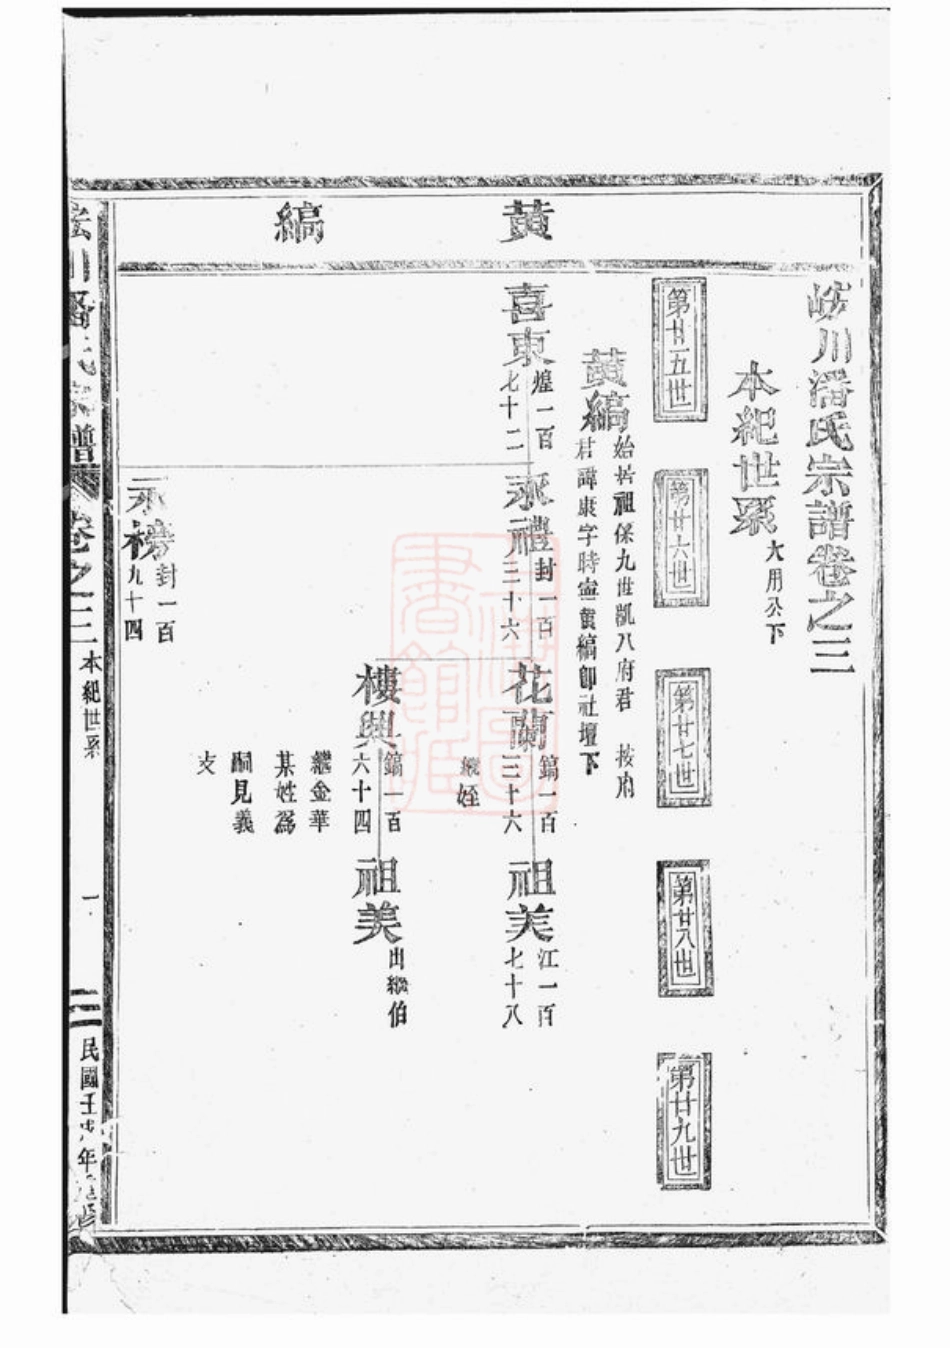 黃縞
峻川潘氏宗譜卷之三
本紀世系 大用公下
第廿五世
第廿六世
第廿七世
第廿八世
第廿九世
黃縞 始祖保九世凱八府君 按府
君諱康字時寧黃縞卽社壇下
喜東 煌一百
七十二
永禮 封一百
三十六
花蘭 鎬一百
三十六
繼姪
祖美 江一百
七十八
樓興 鎬一百
六十四
繼金華
某姓爲
嗣見義
支
祖美 出繼伯
永榜 封一百
九十四
川潘氏宗譜 卷之三 本紀世系 一 民國壬戌年